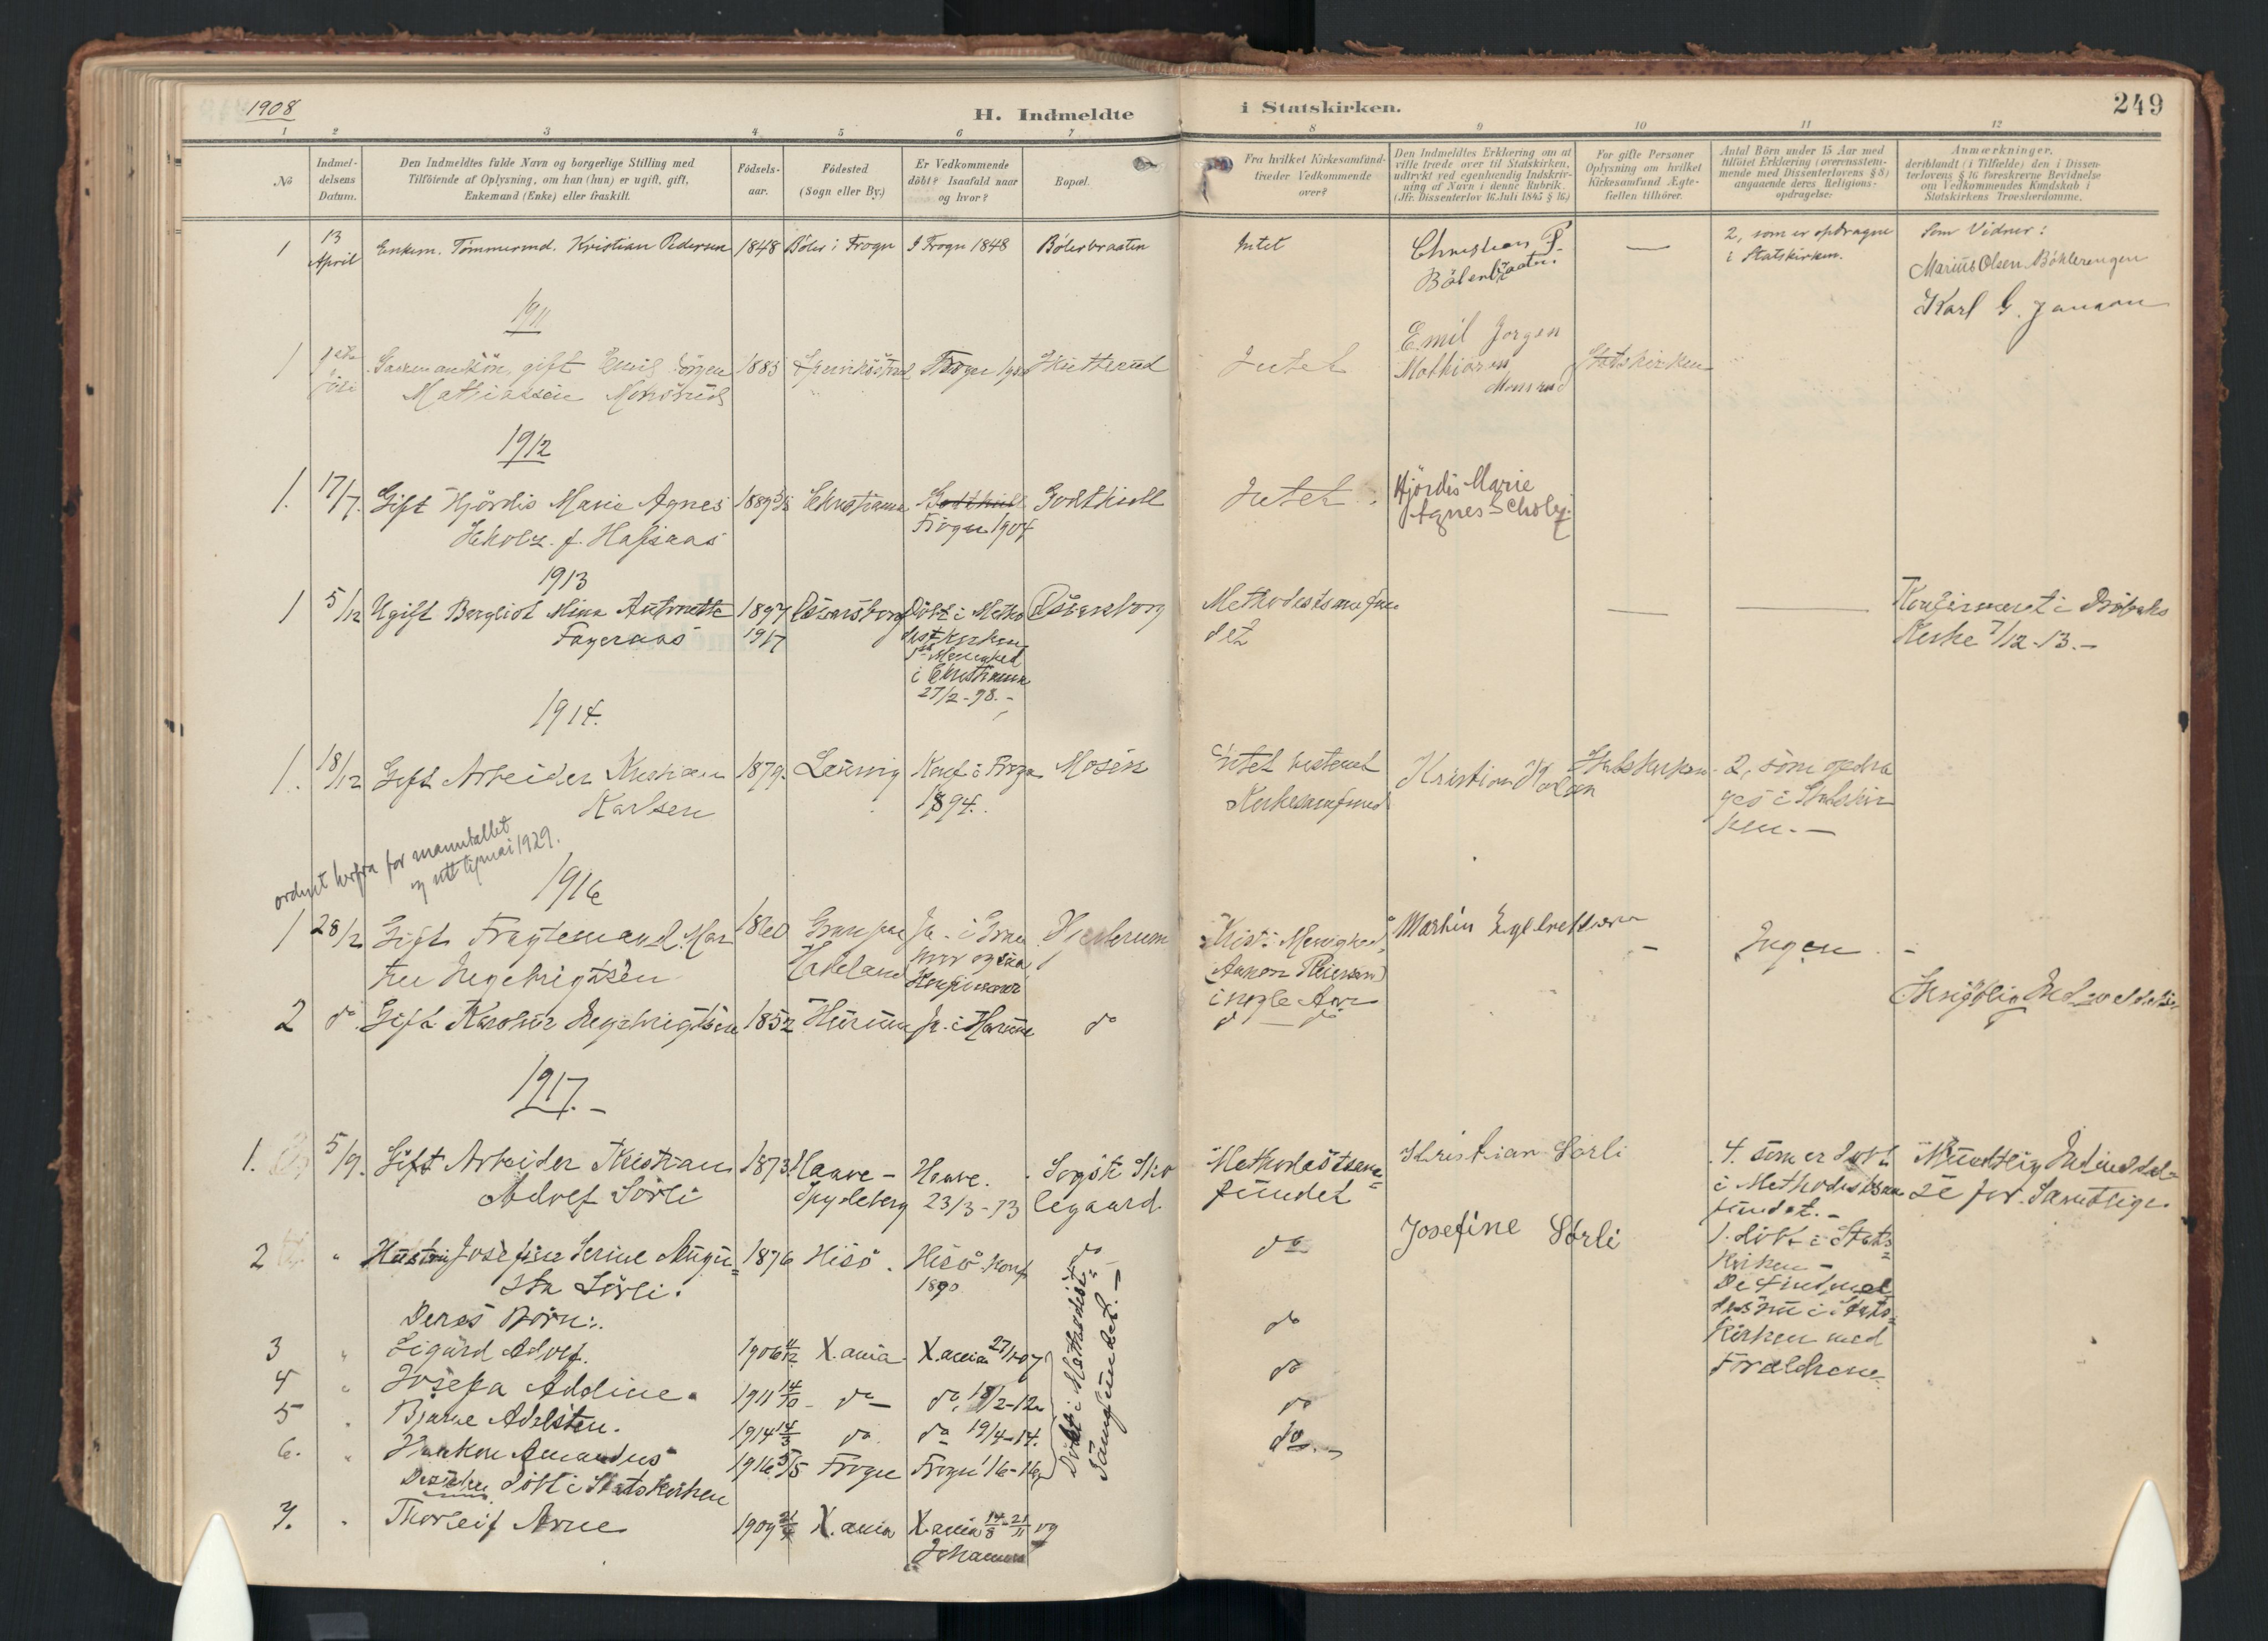 1908
H. Indmeldte
i Statskirken.
249
1 2 3 4 5 6 7 8 9 10 11 12
No
Indmel-
delsens
Datum.
Den Indmeldtes fulde Navn og borgerlige Stilling med
Tilföiende af Oplysning, om han (hun) er ugift, gift,
Enkemand (Enke) eller fraskilt.
Födsels-
aar.
Födested
(Sogn eller By.)
Er Vedkommende
döbt? Isaafald naar
og hvor?
Bopæl.
Fra hvilket Kirkesamfund
træder Vedkommende
over?
Den Indmeldtes Erklæring om at
ville træde over til Statskirken,
udtrykt ved egenhændig Indskriv-
ning af Navn i denne Rubrik.
(Jfr. Dissenterlov 16.Juli 1845 § 16.)
For gifte Personer
Oplysning om hvilket
Kirkesamfund Ægte-
fællen tilhörer.
Antal Börn under 15 Aar med
tilföiet Erklæring (overensstem-
mende med Dissenterlovens § 8)
angaaende deres Religions-
opdragelse:
Anmærkninger,
deriblandt (i Tilfælde) den i Dissen-
terlovens § 16 foreskrevne Bevidnelse
om Vedkommendes Kundskab i
Statskirkens Troesherdomme.
1
13
April
Enkem. Tömmermd. Kristian Pedersen
1848
Böler i Frogn
I Frogn 1848
Bölerbraaten
Intet
Christian P.
Bölerbraaten.
—
2, som er opdragne
i Statskirken.
Som Vidner:
Marius Olsen Böhlerengen
Karl G. Janson
1911
1
gift Emil Jörgen
Mathiassen Monsrud
1885
Frogn
Skutterud
Intet
Emil Jorgen
Mathiasen
Monsrud
Statskirken
1912
1.
17/7.
Gift Hjördis Marie Agnes
Scholz f. Hafsaas
1889
Christiania
Godthiell
Frogn 1904
Godthiell
Intet
Hjördis Marie
Agnes Scholz.
1913
1
5/12
Ugift Bergliot Mina Antonette
Fageraas
1897
1917
Oscarsborg
Döbt i Metho
distkirken
1ste Menighed
i Christiania
27/2-98.-
Oscarsborg
Methodistsamfun
det
—
—
Konfirmeret i Dröbaks
Kirke 7/12-13.-
1914.
1.
18/12
Gift Arbeider Kristian
Karlsen
1879.
Konf i Frogn
1894.
Mosen
Intet bestemt
Kirkesamfund
Kristian Karlsen
Statskirken.
2, som opdra
ges i Statskir
ken.-
ordnet herfra for manntallet
mai 1929.
1916
1
28/2
Gift Fragtemand Mar
tin Ingebrigtsen
1860
Gran paa
Hadeland
Ja - i Gran
hvor ogsaa
Konfirmeret
Krist. Menighed,
i nogle Aar
Martin Ingebrettsen
-
Ingen. -
2
do.
Gift Karoline Ingebrigtsen
1852
Hurum
Ja. i Hurum
do
do — do
Skriftlig Indmeldelse
1917.-
1.
5/9.
Gift Arbeider Kristian
Adolf Sörli
1873.
Haave -
Spydeberg
Haave.
23/3-73
legaard
Methodistsam=
fundet
Kristian Sörli
4. som er döbt
i Methodistsam
fundet.-
1. döbt i Stats=
Kirken -
De indmel
des nu i Stats=
Kirken med
Forældrene.
Mundtlig Indmeldel=
se for Samtlige.
2
"
Hustru Josefine Serine Augu=
sta Sörli.
1876
Hisö.
Hisö Konf
1890
do
do
Josefine Sörli
Deres Börn:.
3
"
Sigurd Adolf.
1906 4/12
X.ania
X.ania 27/1-07
do
4
"
Josefa Addine.
1911 14/10
- do -
do, 18/2-12.
do
5
.
Bjarne Adelsten.
1914 14/3
do
do 19/4-14.
do
6.
"
Haakon Amandus
1916 5/5
Frogn
Frogn 1/6-16
do.-
Döbt i Methodist=
Samfundet.-
Desuden döbt i Statskirken
7.
.
Thorleif Arne
1909
X.ania
X.ania
og
Johannes